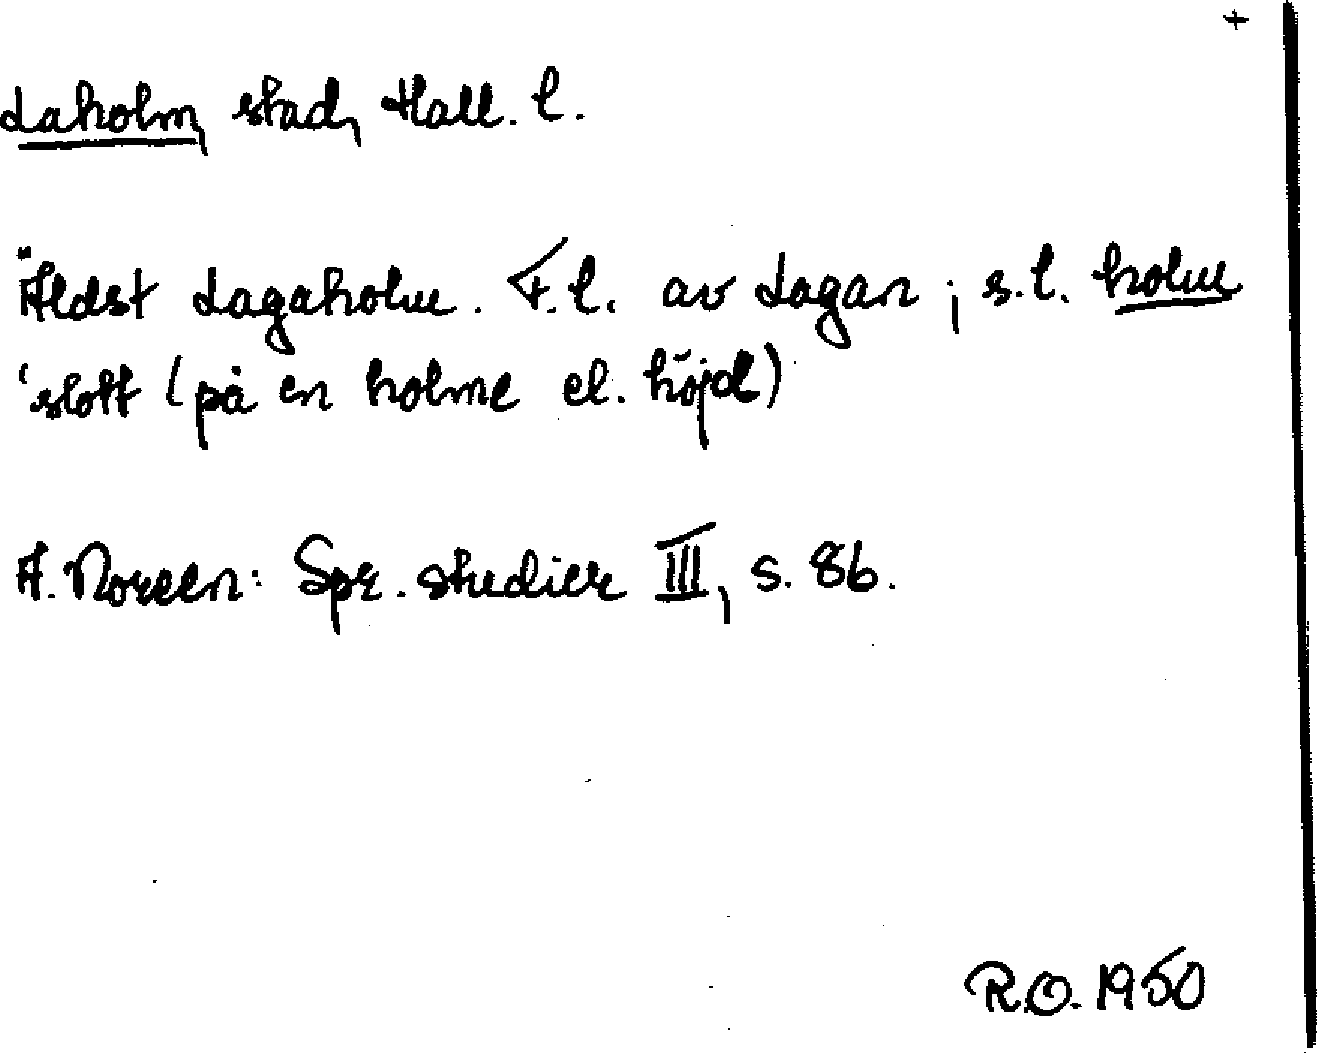 +
Laholm, stad, Hall. l.
Äldst Lagaholm. F.l. av Lagan; s.l. holm
'slott (på en holme el. höjd)
A. Noreen: Spr. studier III, s. 86.
R.O. 1950